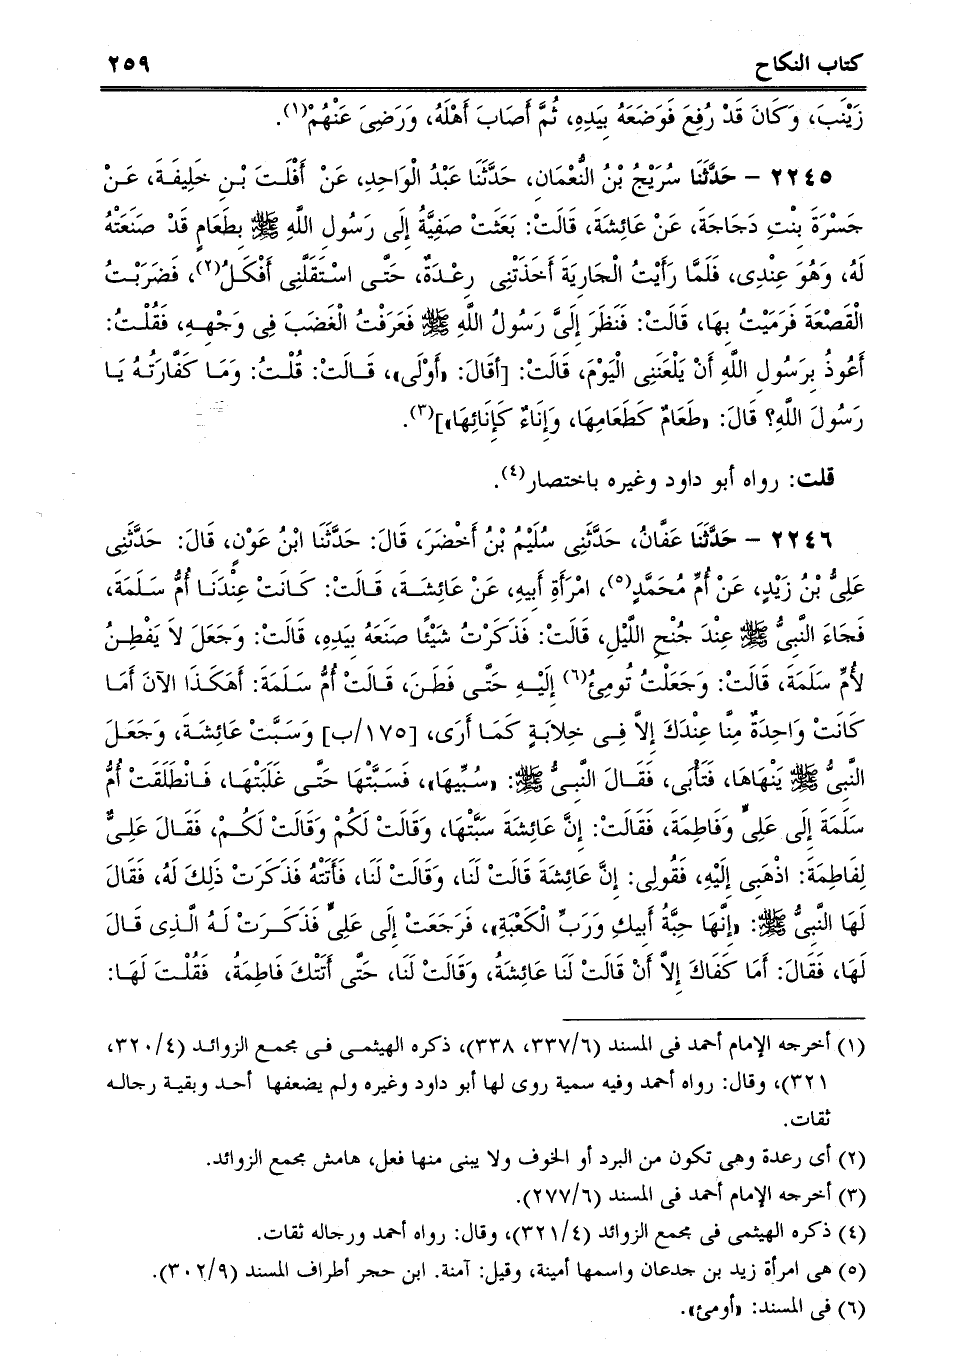 كتاب النكاح ٢٥٩
زَيْنَبَ، وَكَانَ قَدْ رُفِعَ فَوَضَعَهُ بِيَدِهِ، ثُمَّ أَصَابَ أَهْلَهُ، وَرَضِىَ عَنْهُمْ(١).
٢٢٤٥ – حَدَّثَنَا سُرَيْجُ بْنُ النُّعْمَان، حَدَّثَنَا عَبْدُ الْوَاحِدِ، عَنْ أَفْلَتَ بْنِ خَلِيفَةَ، عَنْ
جَسْرَةَ بِنْتِ دَجَاجَةَ، عَنْ عَائِشَةَ، قَالَتْ: بَعَثَتْ صَفِيَّةُ إِلَى رَسُولِ اللَّهِ ﷺ بِطَعَامٍ قَدْ صَنَعَتْهُ
لَهُ، وَهُوَ عِنْدِى، فَلَمَّا رَأَيْتُ الْجَارِيَةَ أَخَذَتْنِى رِعْدَةٌ، حَتَّى اسْتَقَلَّنِى أَفْكَلُ(٢)، فَضَرَبْتُ
الْقَصْعَةَ فَرَمَيْتُ بِهَا، قَالَتْ: فَنَظَرَ إِلَىَّ رَسُولُ اللَّهِ ﷺ فَعَرَفْتُ الْغَضَبَ فِى وَجْهِهِ، فَقُلْتُ:
أَعُوذُ بِرَسُولِ اللَّهِ أَنْ يَلْعَنَنِى الْيَوْمَ، قَالَتْ: [أقَالَ: «أَوْلَى»، قَالَتْ: قُلْتُ: وَمَا كَفَّارَتُهُ يَا
رَسُولَ اللَّهِ؟ قَالَ: «طَعَامٌ كَطَعَامِهَا، وَإِنَاءٌ كَإِنَائِهَا»](٣).
قلت: رواه أبو داود وغيره باختصار(٤).
٢٢٤٦ – حَدَّثَنَا عَفَّانُ، حَدَّثَنِى سُلَيْمُ بْنُ أَخْضَرَ، قَالَ: حَدَّثَنَا ابْنُ عَوْنٍ، قَالَ: حَدَّثَنِى
عَلِىُّ بْنُ زَيْدٍ، عَنْ أُمِّ مُحَمَّدٍ(٥)، امْرَأَةِ أَبِيهِ، عَنْ عَائِشَةَ، قَالَتْ: كَانَتْ عِنْدَنَا أُمُّ سَلَمَةَ،
فَجَاءَ النَّبِىُّ ﷺ عِنْدَ جُنْحِ اللَّيْلِ، قَالَتْ: فَذَكَرْتُ شَيْئًا صَنَعَهُ بِيَدِهِ، قَالَتْ: وَجَعَلَ لاَ يَفْطِنُ
لأُمِّ سَلَمَةَ، قَالَتْ: وَجَعَلْتُ تُومِئُ(٦) إِلَيْهِ حَتَّى فَطِنَ، قَالَتْ أُمُّ سَلَمَةَ: أَهَكَذَا الآنَ أَمَا
كَانَتْ وَاحِدَةٌ مِنَّا عِنْدَكَ إِلاَّ فِى خِلابَةٍ كَمَا أَرَى، [١٧٥/ب] وَسَبَّتْ عَائِشَةَ، وَجَعَلَ
النَّبِىُّ ﷺ يَنْهَاهَا، فَتَأْبَى، فَقَالَ النَّبِىُّ ﷺ: «سُبِّيهَا»، فَسَبَّتْهَا حَتَّى غَلَبَتْهَا، فَانْطَلَقَتْ أُمُّ
سَلَمَةَ إِلَى عَلِىٍّ وَفَاطِمَةَ، فَقَالَتْ: إِنَّ عَائِشَةَ سَبَّتْهَا، وَقَالَتْ لَكُمْ وَقَالَتْ لَكُمْ، فَقَالَ عَلِىٌّ
لِفَاطِمَةَ: اذْهَبِى إِلَيْهِ، فَقُولِى: إِنَّ عَائِشَةَ قَالَتْ لَنَا، وَقَالَتْ لَنَا، فَأَتَتْهُ فَذَكَرَتْ ذَلِكَ لَهُ، فَقَالَ
لَهَا النَّبِىُّ ﷺ: «إِنَّهَا حِبَّةُ أَبِيكِ وَرَبِّ الْكَعْبَةِ»، فَرَجَعَتْ إِلَى عَلِىٍّ فَذَكَرَتْ لَهُ الَّذِى قَالَ
لَهَا، فَقَالَ: أَمَا كَفَاكَ إِلاَّ أَنْ قَالَتْ لَنَا عَائِشَةُ، وَقَالَتْ لَنَا، حَتَّى أَتَتْكَ فَاطِمَةُ، فَقُلْتَ لَهَا:
(١) أخرجه الإمام أحمد فى المسند (٣٣٧/٦، ٣٣٨)، ذكره الهيثمى فى مجمع الزوائد (٣٢٠/٤،
٣٢١)، وقال: رواه أحمد وفيه سمية روى لها أبو داود وغيره ولم يضعفها أحد وبقية رجاله
ثقات.
(٢) أى رعدة وهى تكون من البرد أو الخوف ولا يبنى منها فعل، هامش مجمع الزوائد.
(٣) أخرجه الإمام أحمد فى المسند (٢٧٧/٦).
(٤) ذكره الهيثمى فى مجمع الزوائد (٣٢١/٤)، وقال: رواه أحمد ورجاله ثقات.
(٥) هى امرأة زيد بن جدعان واسمها أمينة، وقيل: آمنة. ابن حجر أطراف المسند (٣٠٢/٩).
(٦) فى المسند: «أومئ».